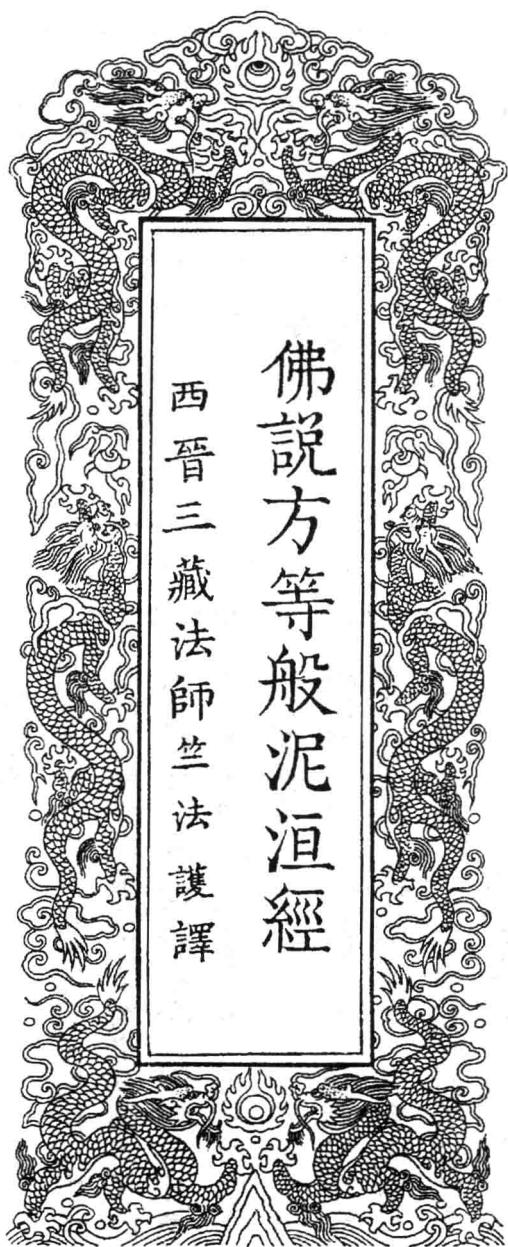 佛說方等般泥洹經
西晉三藏法師竺法護譯